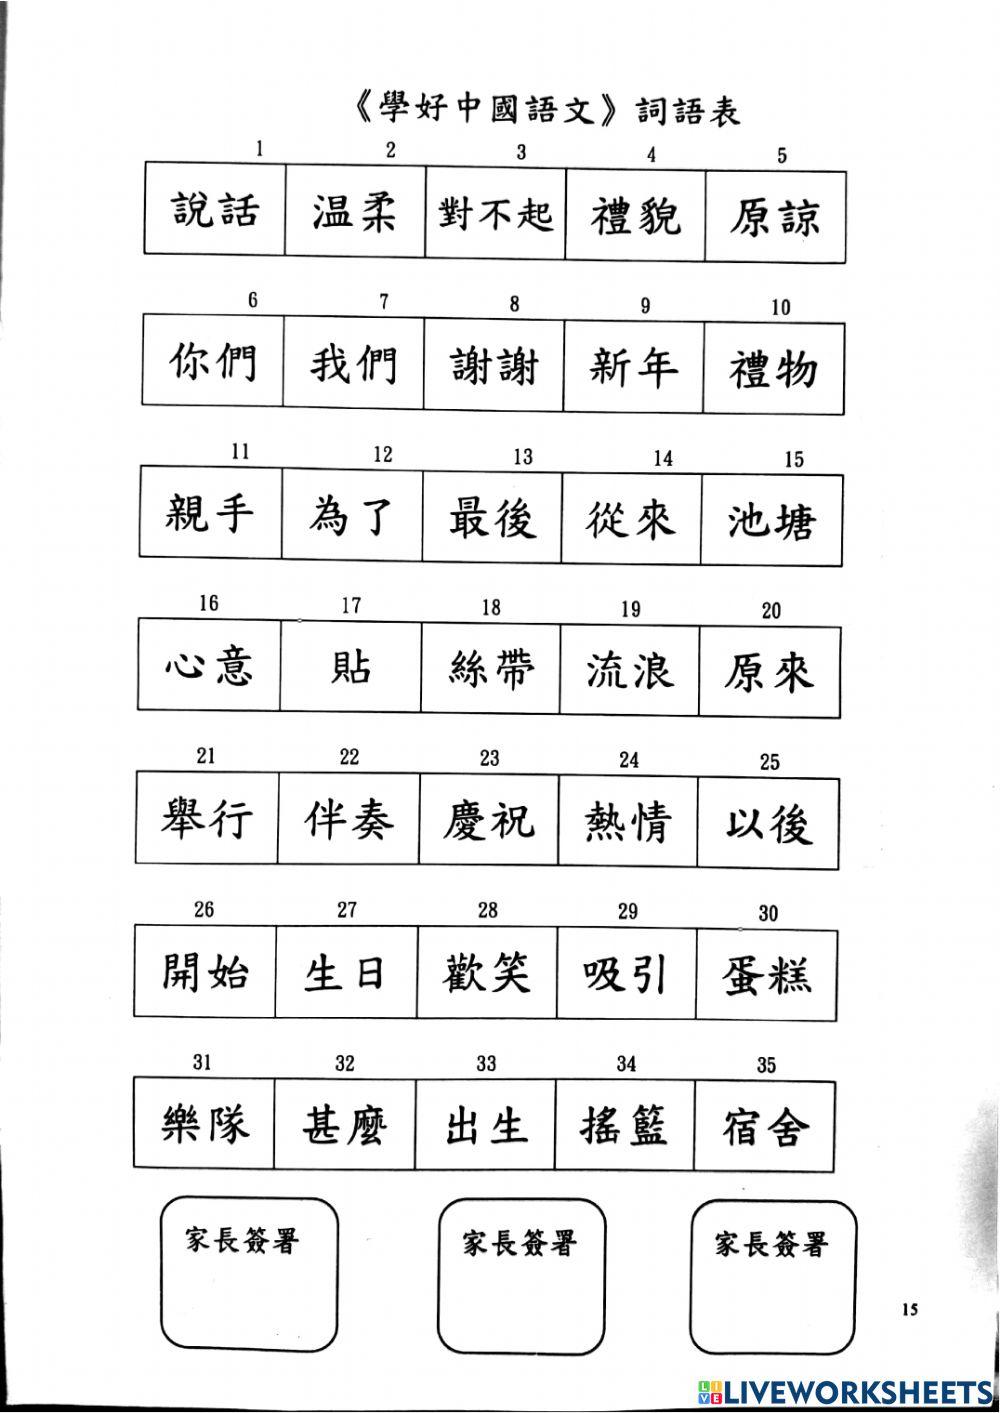 《學好中國語文》詞語表
1 2 3 4 5
說話 温柔 對不起 禮貌 原諒
6 7 8 9 10
你們 我們 謝謝 新年 禮物
11 12 13 14 15
親手 為了 最後 從來 池塘
16 17 18 19 20
心意 貼 絲帶 流浪 原來
21 22 23 24 25
舉行 伴奏 慶祝 熱情 以後
26 27 28 29 30
開始 生日 歡笑 吸引 蛋糕
31 32 33 34 35
樂隊 甚麼 出生 搖籃 宿舍
家長簽署 家長簽署 家長簽署
15
LIVEWORKSHEETS